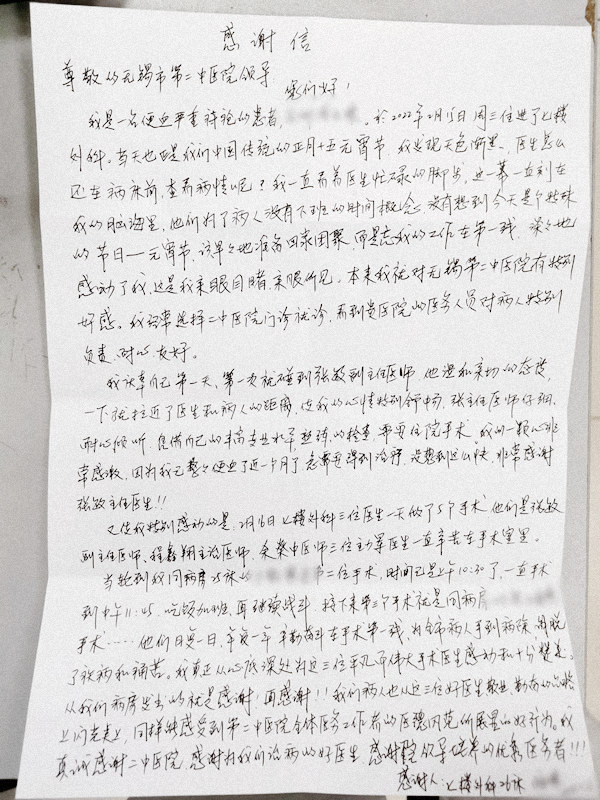 感谢信
尊敬的无锡市第二中医院领导
您们好！
我是一名便血严重痔疮的患者，于2022年2月15日周三住进了七楼
外科。当天也正是我们中国传统的正月十五元宵节，我发现天色渐黑、医生怎么
还在病床前，查看病情呢？我一直看着医生忙碌的脚步，这一幕一直刻在
我的脑海里，他们为了病人没有下班的时间概念，没有想到今天是个特殊
的节日—元宵节，该早早地准备回家团聚，而是忘我的工作在第一线，深深地
感动了我，这是我亲眼目睹，亲眼所见。本来我就对无锡第二中医院有特别
好感。我经常选择二中医院门诊就诊，看到贵医院的医务人员对病人特别
负责，耐心友好。
我庆幸自己第一天，第一次就碰到张敏副主任医师，他温和亲切的态度，
一下就拉近了医生和病人的距离，使我的心情特别舒畅，张主任医师仔细，
耐心倾听，凭借自己的丰富专业水平熟练的检查，需要住院手术，我的一颗心非
常感激，因为我已整整便血了近一个月了，急需要得到治疗，没想到这么快，非常感谢
张敏主任医生！！
又使我特别感动的是，2月16日七楼外科三位医生一天做了5个手术，他们是张敏
副主任医师、程翔主治医师、余蔡中医师三位主刀医生一直辛苦在手术室里。
当轮到我同病房25床 第二位手术，时间已是上午10:30了，一直手术
到中午11:45，吃饭加班，再继续战斗，接下来第三个手术就是同病房
手术……他们日复一日，年复一年辛勤奋斗在手术第一线，为全市病人手到病除，摆脱
了疾病和痛苦。我真正从心底深处为这三位平凡而伟大手术医生感动和十分赞美。
从我们病房发出的就是感谢！再感谢！！我们病人也从这三位好医生敬业 勤奋的品格
上闪光点，同样能感受到第二中医院全体医务工作者的医德风范所展显的好行为。我
真诚感谢二中医院，感谢为我们治病的好医生，感谢院领导培养的优秀医务者！！！
感谢人：七楼外科26床